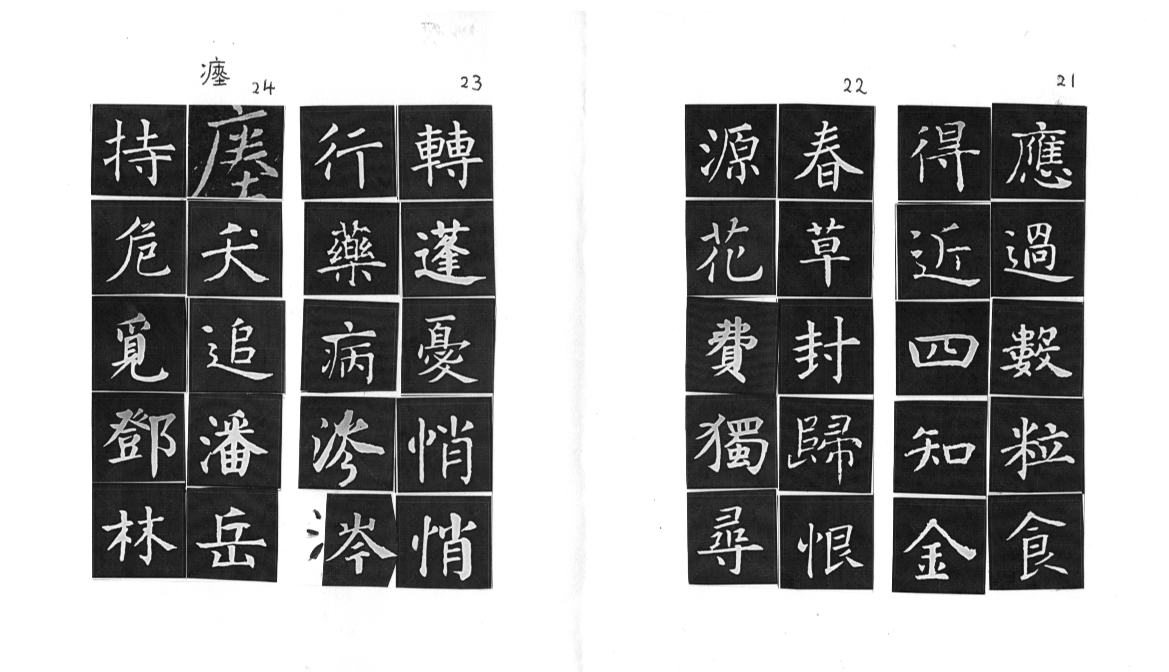 21
應過數粒食
得近四知金
22
春草封歸恨
源花費獨尋
23
轉蓬憂悄悄
行藥病涔涔
瘞
24
瘞夭追潘岳
持危覓鄧林